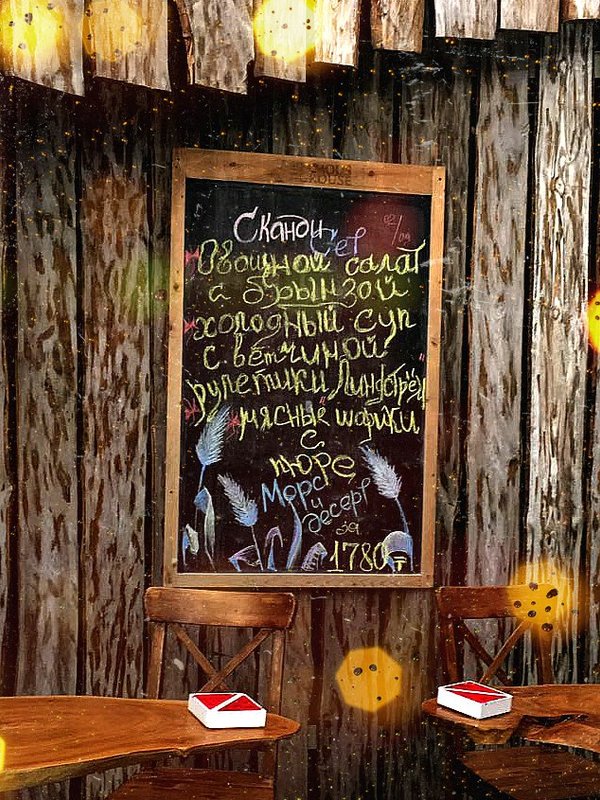 Сканди Сет
02/09
* Овощной салат
с брынзой
* холодный суп
с ветчиной
* рулетики Линдстрём
* мясные шарики
с
пюре
Морс
и
десерт
за
1780₸